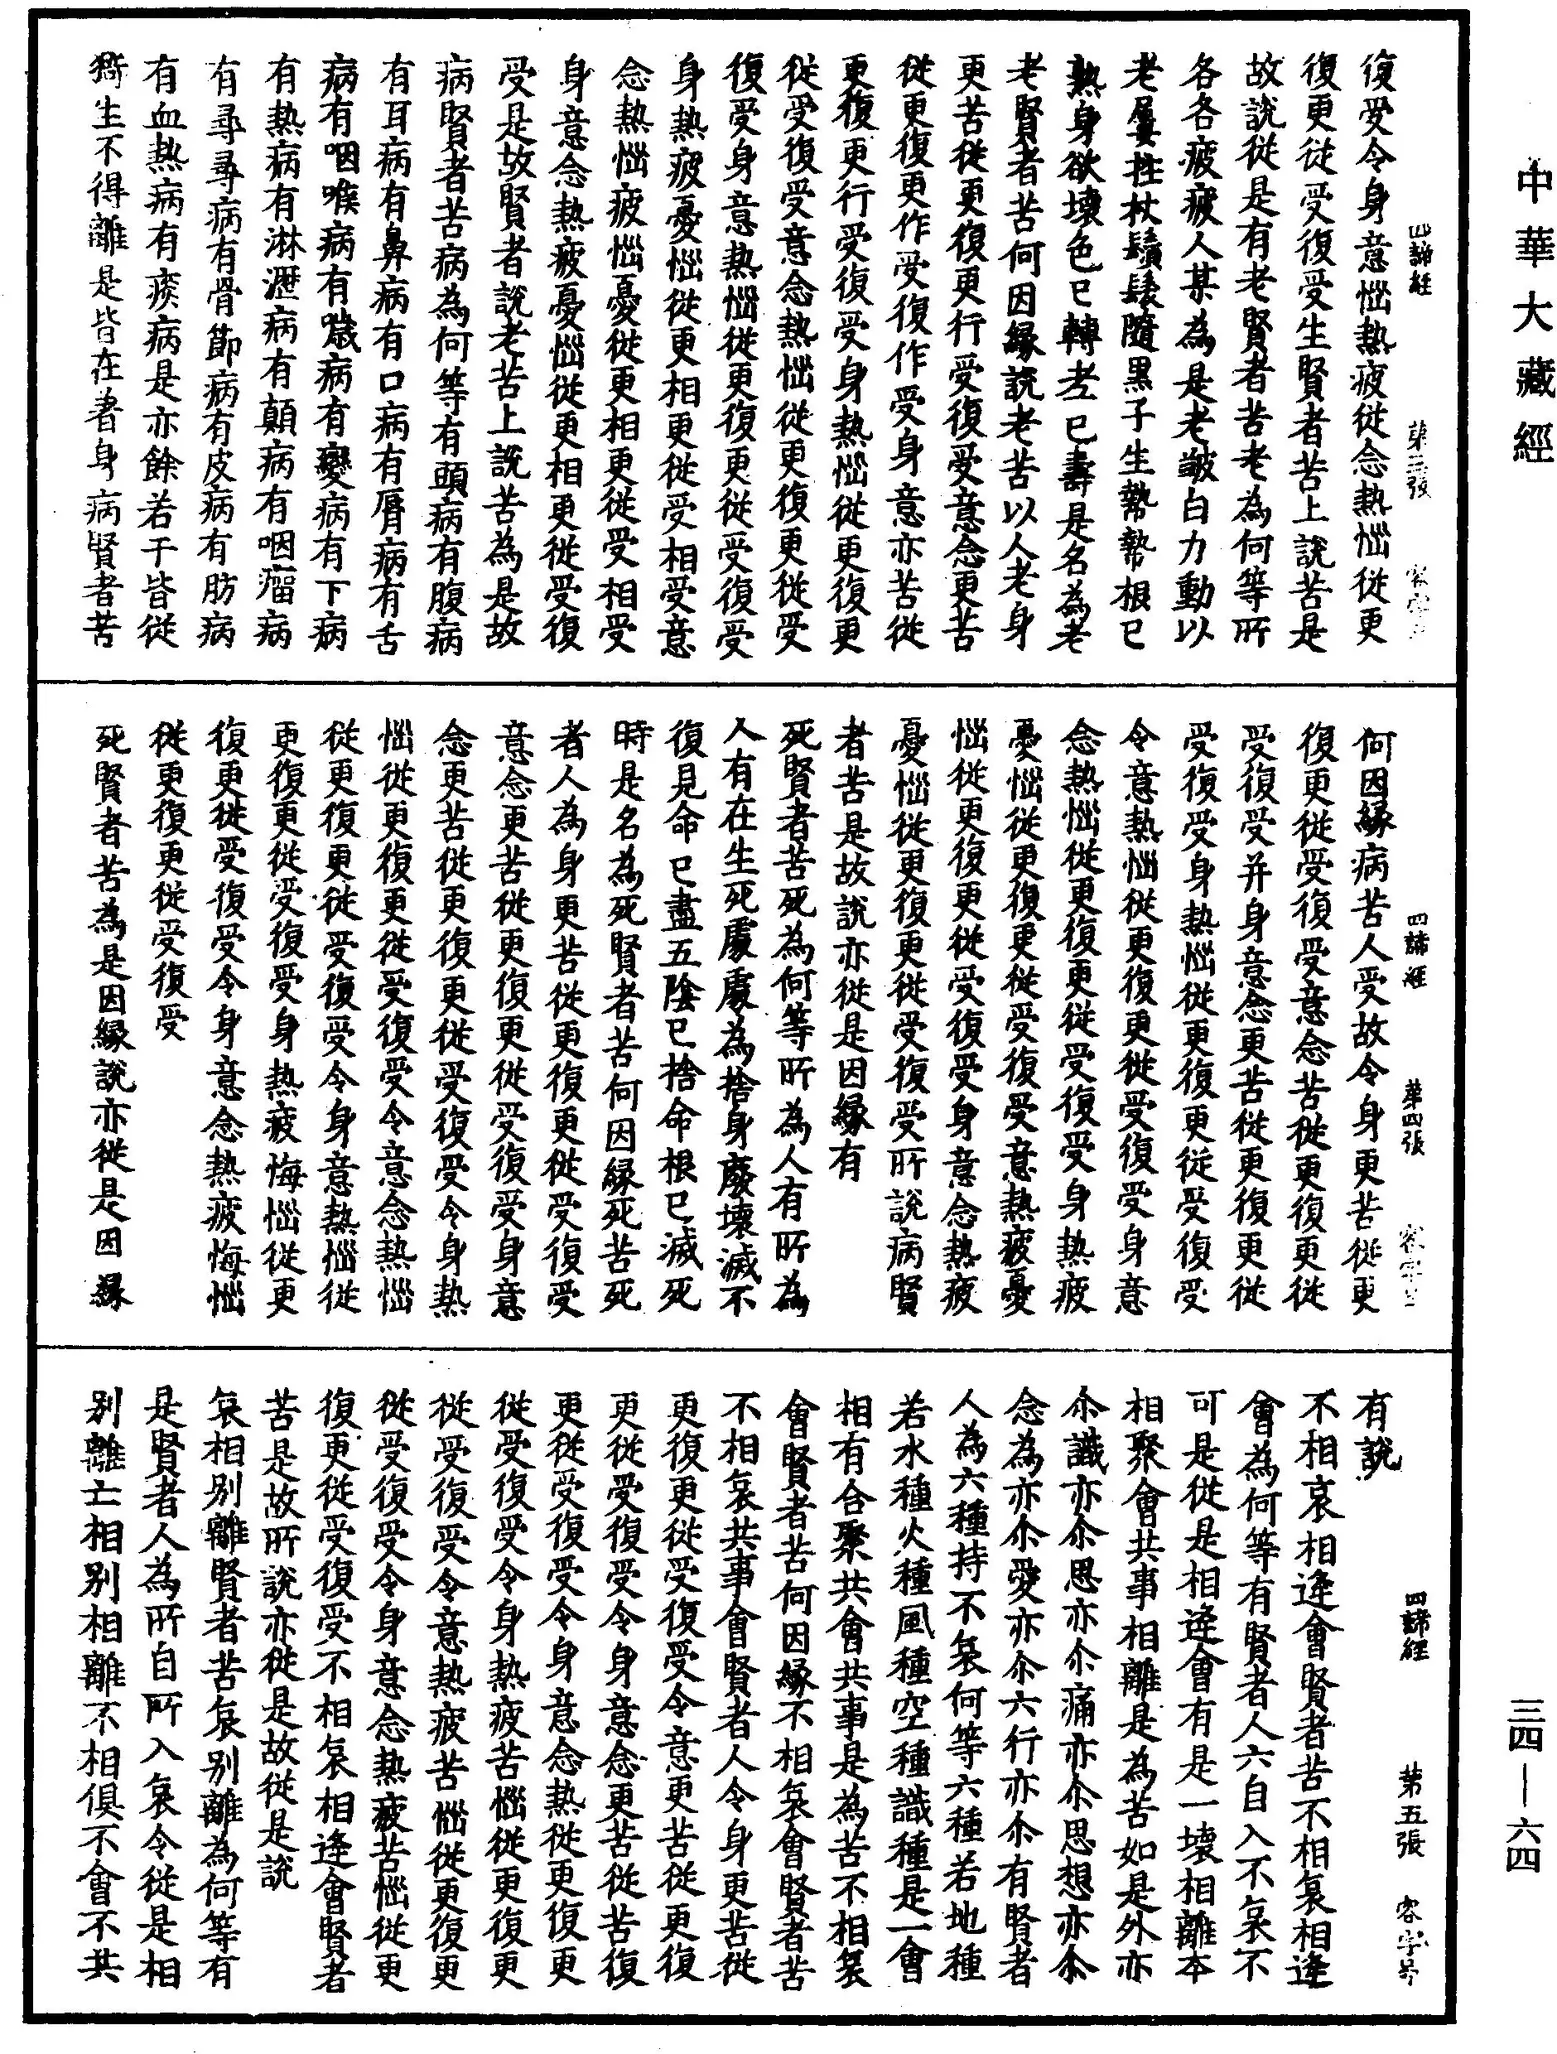 中華大藏經
四諦經　第三張　容字号
復受令身意惱熱疲從念熱惱從更
復更從受復受生賢者苦上說苦是
故說從是有老賢者苦老為何等所
各各疲疲人某為是老皺白力動以
老屢拄杖鬚髮隨黑子生㔟㔟根已
熟身欲壞色已轉老已壽是名為老
老賢者苦何因緣說老苦以人老身
更苦從更復更行受復受意念更苦
從更復更作受復作受身意亦苦從
更復更行受復受身熱惱從更復更
從受復受意念熱惱從更復更從受
復受身意熱惱從更復更從受復受
身熱疲憂惱從更相更從受相受意
念熱惱疲惱憂從更相更從受相受
身意念熱疲憂惱從更相更從受復
受是故賢者說老苦上說苦為是故
病賢者苦病為何等有頭病有腹病
有耳病有鼻病有口病有脣病有舌
病有咽喉病有噦病有變病有下病
有熱病有淋瀝病有顛病有咽瘤病
有尋尋病有骨節病有皮病有肪病
有血熱病有痰病是亦餘若干皆從
猗生不得離是皆在著身病賢者苦
四諦經　第四張　容字号
何因緣病苦人受故令身更苦從更
復更從受復受意念苦從更復更從
受復受并身意念更苦從更復更從
受復受身熱惱從更復更從受復受
令意熱惱從更復更從受復受身意
念熱惱從更復更從受復受身熱疲
憂惱從更復更從受復受意熱疲憂
惱從更復更從受復受身意念熱疲
憂惱從更復更從受復受所說病賢
者苦是故說亦從是因緣有
死賢者苦死為何等所為人有所為
人有在生死處處為捨身廢壞滅不
復見命已盡五陰已捨命根已滅死
時是名為死賢者苦何因緣死苦死
者人為身更苦從更復更從受復受
意念更苦從更復更從受復受身意
念更苦從更復更從受復受令身熱
惱從更復更從受復受令意念熱惱
從更復更從受復受令身意熱惱從
更復更從受復受身熱疲悔惱從更
復更從受復受令身意念熱疲悔惱
從更復更從受復受
死賢者苦為是因緣說亦從是因緣
四諦經　第五張　容字号
有說
不相哀相逢會賢者苦不相哀相逢
會為何等有賢者人六自入不哀不
可是從是相逢會有是一壞相離本
相聚會共事相離是為苦如是外亦
尒識亦尒思亦尒痛亦尒思想亦尒
念為亦尒愛亦尒六行亦尒有賢者
人為六種持不哀何等六種若地種
若水種火種風種空種識種是一會
相有合聚共會共事是為苦不相哀
會賢者苦何因緣不相哀會賢者苦
不相哀共事會賢者人令身更苦從
更復更從受復受令意更苦從更復
更從受復受令身意念更苦從苦復
更從受復受令身意念熱從更復更
從受復受令身熱疲苦惱從更復更
從受復受令意熱疲苦惱從更復更
從受復受令身意念熱疲苦惱從更
復更從受復受不相哀相逢會賢者
苦是故所說亦從是故從是說
哀相別離賢者苦哀別離為何等有
是賢者人為所自所入哀令從是相
別離亡相別相離不相俱不會不共
三四—六四